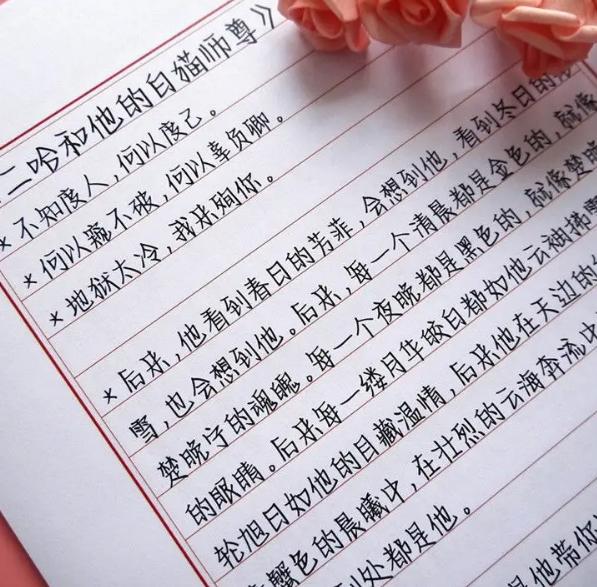 二哈和他的白猫师尊》
* 不知度人,何以度己。
* 何以不破,何以辜负卿。
* 地狱太冷,我来殉你。
* 后来,他看到春日的芳菲,会想到他,看到冬日的
雪,也会想到他。后来,每一个清晨都是金色的,就像
楚晚宁的魂魄。每一个夜晚都是黑色的,就像楚晚
的眼睛。后来每一缕月华皎白都如他云袖拂
轮旭日如他的目藏温情,后来他在天边的
蟹色的晨曦中,在壮烈的云海奔流中
到处都是他。
他带你